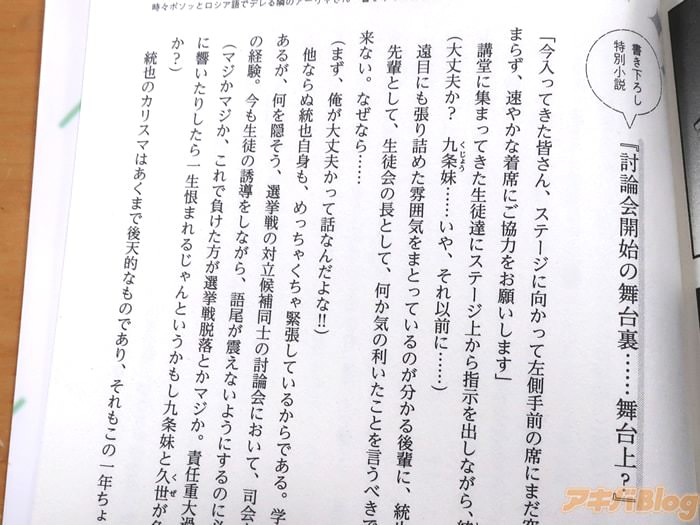 時々ボソッとロシア語でデレる隣のアーリャさん
書き下ろし
特別小説
『討論会開始の舞台裏……舞台上？』
「今入ってきた皆さん、ステージに向かって左側手前の席にまだ空
まらず、速やかな着席にご協力をお願いします」
講堂に集まってきた生徒達にステージ上から指示を出しながら、統
(大丈夫か？　九条妹……いや、それ以前に……)
くじょう
遠目にも張り詰めた雰囲気をまとっているのが分かる後輩に、統也
先輩として、生徒会の長として、何か気の利いたことを言うべきで
来ない。なぜなら……
(まず、俺が大丈夫かって話なんだよな!!)
他ならぬ統也自身も、めっちゃくちゃ緊張しているからである。学
あるが、何を隠そう、選挙戦の対立候補同士の討論会において、司会
の経験。今も生徒の誘導をしながら、語尾が震えないようにするのに
(マジかマジか、これで負けた方が選挙戦脱落とかマジか。責任重大過
に響いたりしたら一生恨まれるじゃんというかもし九条妹と久世が
くぜ
か？)
統也のカリスマはあくまで後天的なものであり、それもこの一年ちょ
アキバBlog